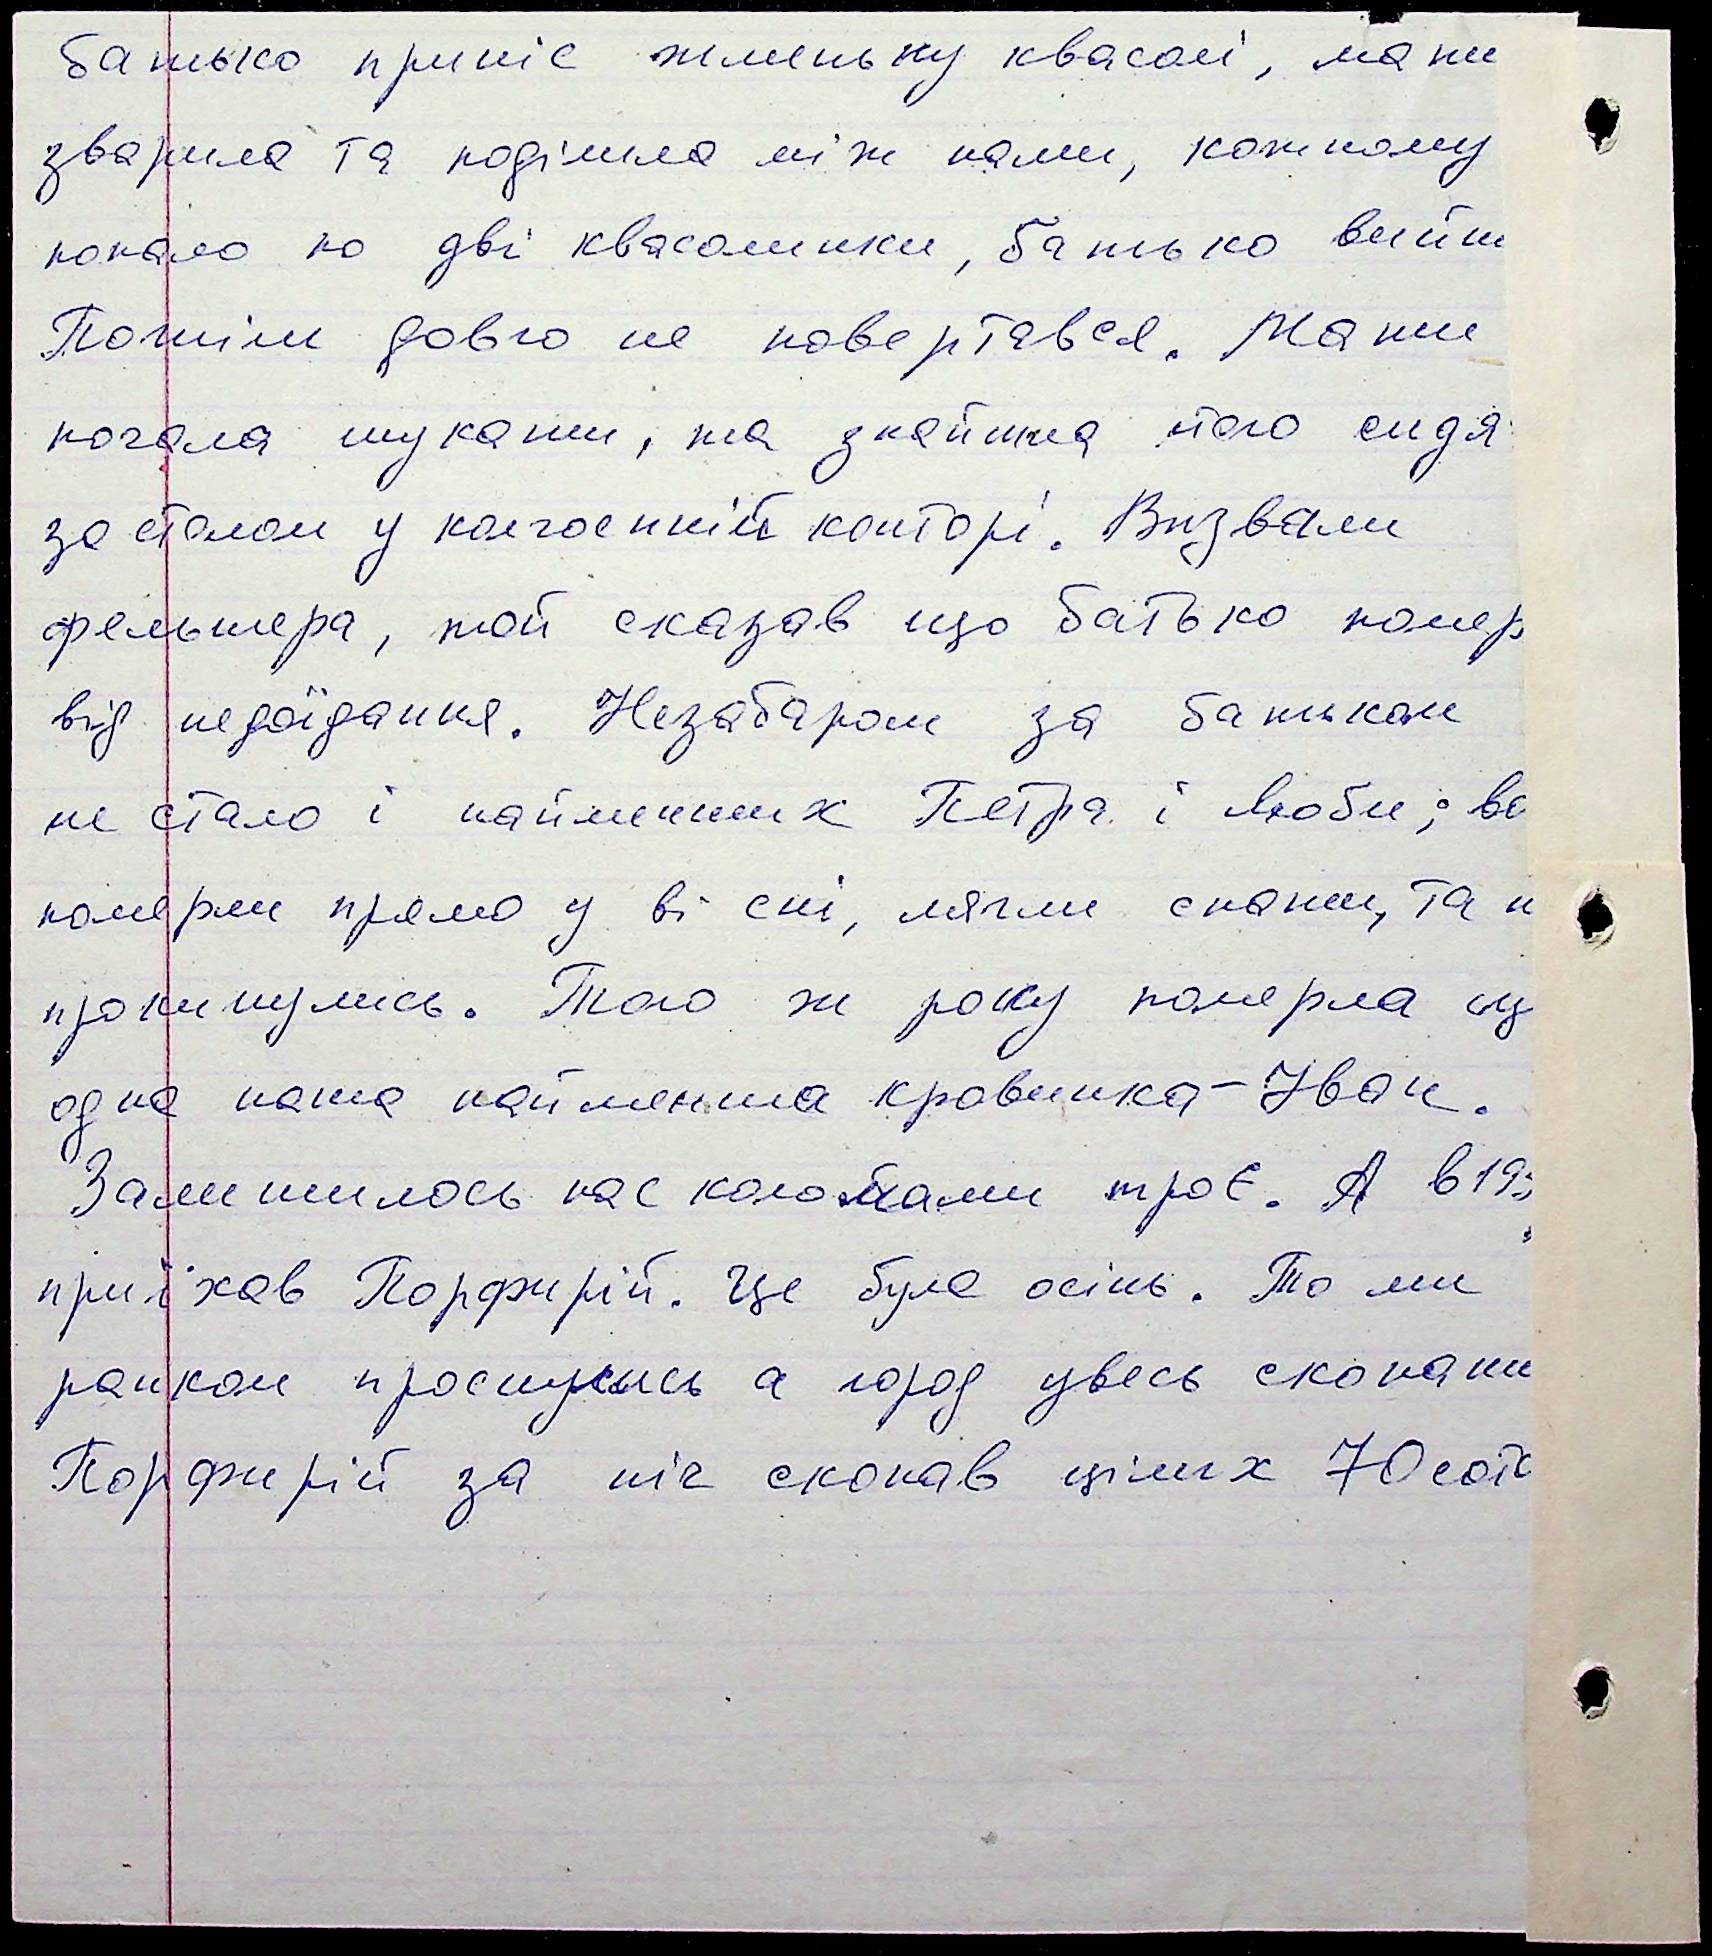 батько приніс жменьку квасолі, мати
зварила та поділила між нами, кожному
попало по дві квасолинки, батько вийш
Потім довго не повертався. Мати
почала шукати, та знайшла його сидя
за столом у колгоспній конторі. Визвали
фельшера, той сказав що батько помер
від недоїдання. Незабаром за батьком
не стало і найменших Петра і Люби; во
померли прямо у ві сні, лягли спати, та н
прокинулись. Того ж року померла ще
одна наша найменша кровинка - Иван.
Залишилось нас коло мами троє. А в 193
приїхав Порфирій. Це була осінь. То ми
ранком проснулись а город увесь скопани
Порфирій за ніч скопав цілих 70 соток